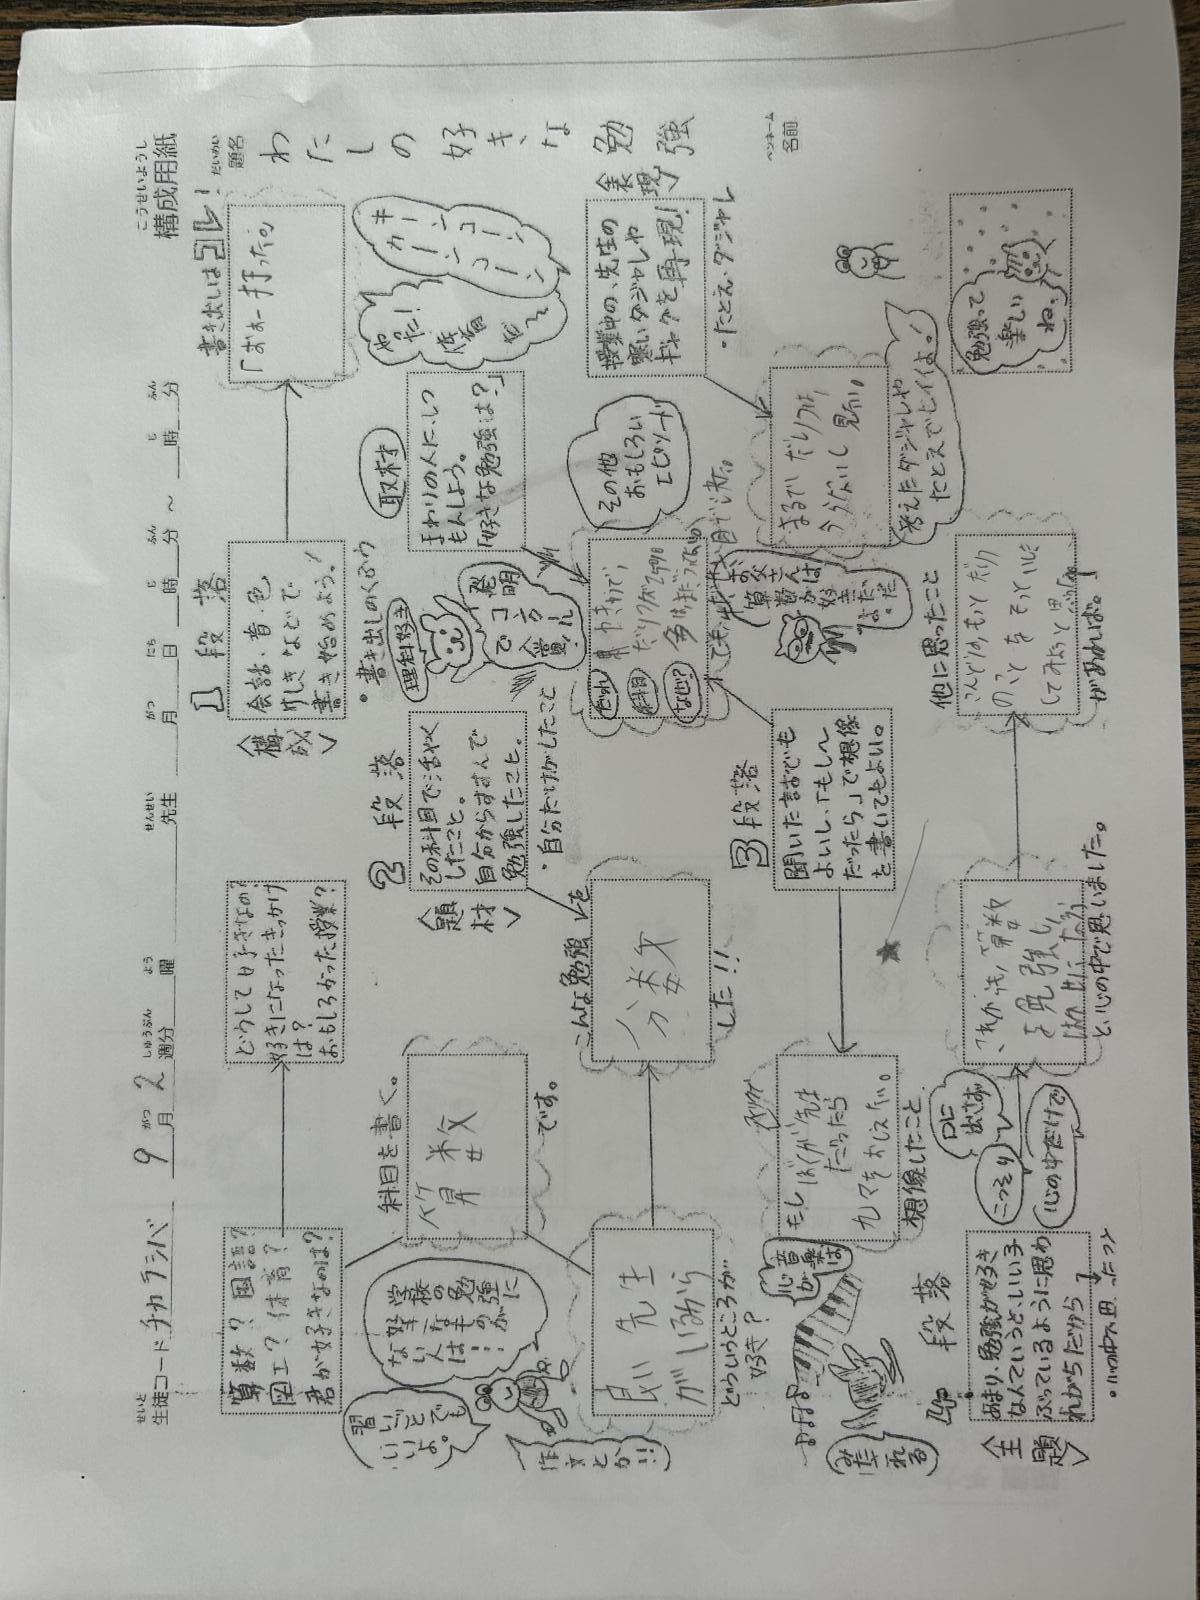 構成用紙
こうせいようし
生徒コード チカラシバ 9月2週分 曜 先生 月 日 時 分 ～ 時 分
せいと がつ しゅうぶん よう せんせい がつ にち じ ふん じ ふん
題名 わたしの好きな勉強
だいめい
ペンネーム
名前
1段落
書き出しは「」!
算数?国語?
図工?体育?
君が好きなのは?
どうして好きなの?
好きになったきっかけ
は?
おもしろかった授業?
〈構成〉
会話・音・色
けしきなどで
書き始めよう!
・書き出しのくふう
キーンコーン
カーンコーン
やった!
体育だ
学校の勉強に
好きなものが
ない人は…
習いごとでも
いいよ。
作文とか!!
科目を書く。
算数
です。
2段落
〈題材〉
その科目で活やく
したこと。
自分からすすんで
勉強したこと。
・自分だけがしたこと
理科好き
発明
コンクール
で入賞
取材
まわりの人にしつ
もんしよう。
「好きな勉強は?」
良い先生
がいるから
どういうところが…
好き?
こんな勉強を
分数
した!!
だれ
科目
なぜ?
その他
おもしろい
エピソード
〈表現〉
授業中の、先生の
寒いダジャレや
ギャグを再現!
・たとえ・ダジャレ
3段落
聞いた話でも
よいし、「もし～
だったら」で想像
を書いてもよい。
もしぼくが先生
だったら
九マをおしえたい。
想像したこと
音楽は
心が
みだれる
お父さんは
算数が
好き
だなぁ。
まるで
考えたダジャレや
たとえでヒイイよ!
4段落
〈主題〉
あまり、勉強が好き
なんていうと、いい子
ぶっているように思わ
れがちだから
・心の中で思ったこと
口に
出さず
こっそり
心の中だけで
これからも、算数
を勉強し
と心の中で思いました。
他に思ったこと
してみたいと思
があれば。
勉強って
楽しい
ね。